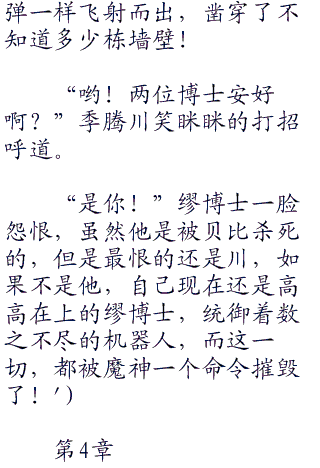 弹一样飞射而出，凿穿了不
知道多少栋墙壁！
“哟！两位博士安好
啊？”季腾川笑眯眯的打招
呼道。
“是你！”缪博士一脸
怨恨，虽然他是被贝比杀死
的，但是最恨的还是川，如
果不是他，自己现在还是高
高在上的缪博士，统御着数
之不尽的机器人，而这一
切，都被魔神一个命令摧毁
了！')
第4章